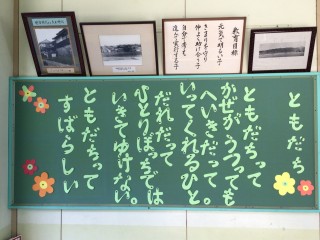 教育目標
元気で明るい子
きまりを守り
仲よく助け合う子
自分で考え
進んで実行する子
ともだち
ともだちって
かぜがうつっても
へいきだって
いってくれるひと
だれだって
ひとりぼっちでは
いきてゆけない。
ともだちって
すばらしい